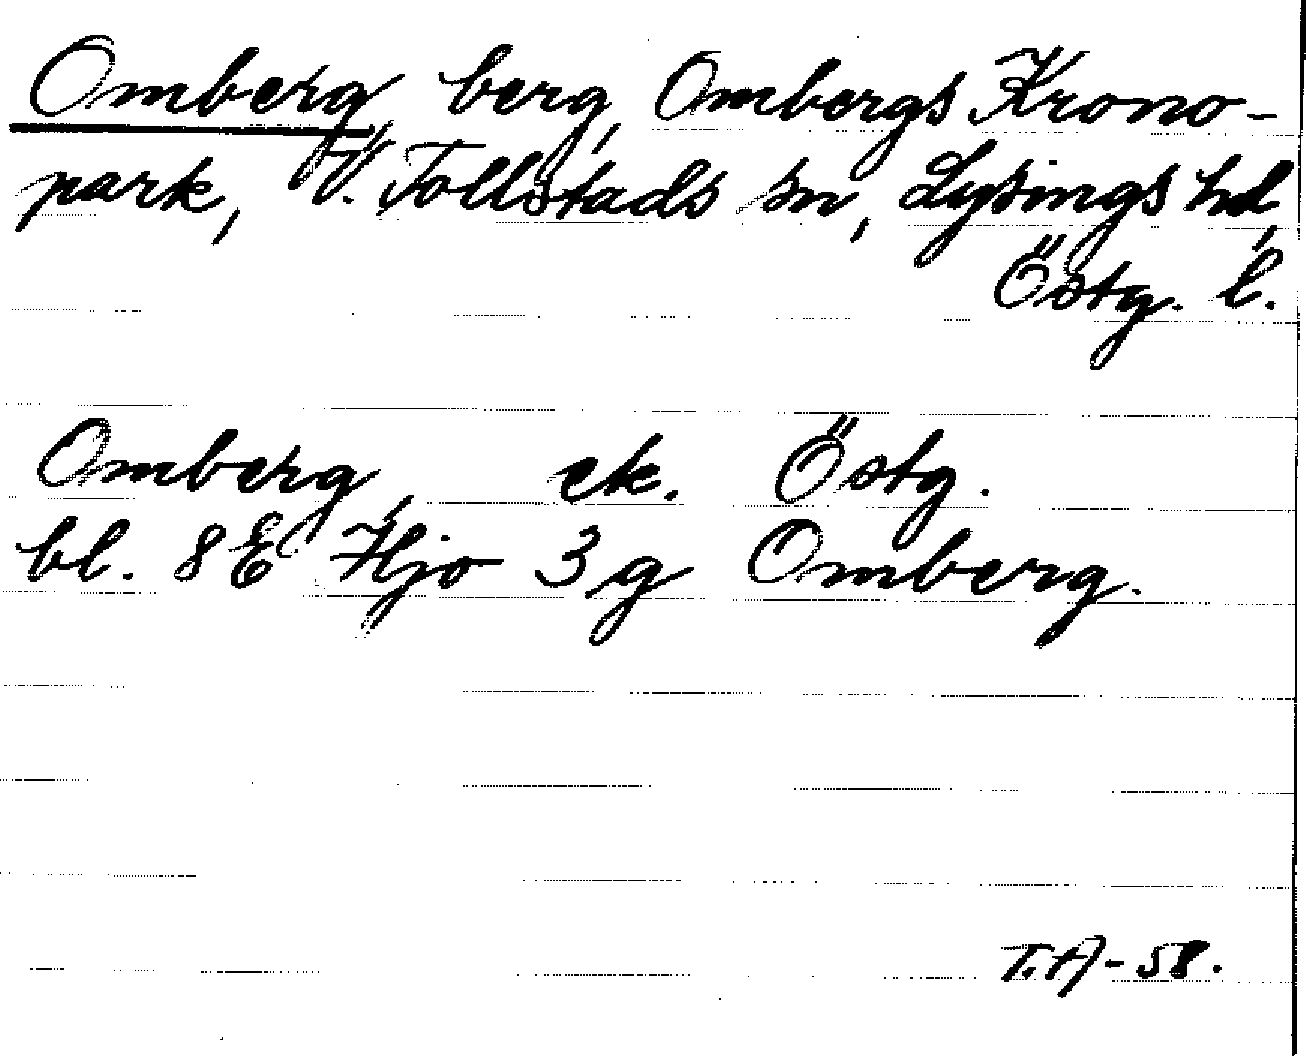 Omberg, berg, Ombergs Krono-
park, V. Tollstads sn, Lysings hd,
Östg. l.
Omberg, ek. Östg.
bl. 8E Hjo 3g Omberg.
T.A-58.